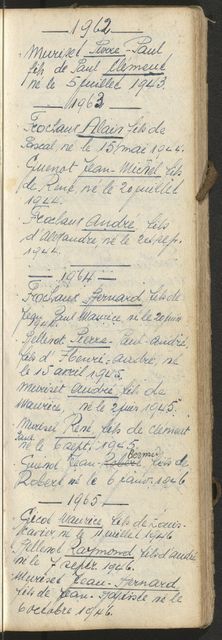 1962
Muriset Pierre-Paul
fils de Paul Clement
né le 5 juillet 1943.
1963
Froclaus Alain fils de
Pascal né le 15 mai 1944.
Guenot Jean Michel fils
de René, né le 20 juillet
1944.
Froclaux André, fils
d'Alexandre né le 20 sep.
1944.
1964
Froclaux Bernard fils de
Jean Paul Maurice né le 20 juin
Gellenot Pierre-Paul-André
fils d'Henri-André, né
le 15 avril 1945.
Muriset André fils de
Maurice, né le 2 juin 1945.
Muriset René fils de Clement
Paul
né le 6 sept. 1945
Guenot Jean Robert fils de
Robert né le 6 janv. 1946
1965
Maurice fils de Louis
Xavier né le 11 juillet 1946
Gellenot Raymond fils d'André
né le 7 sept. 1946.
Muriset Jean-Bernard
fils de Jean-Baptiste né le
6 octobre 1946.